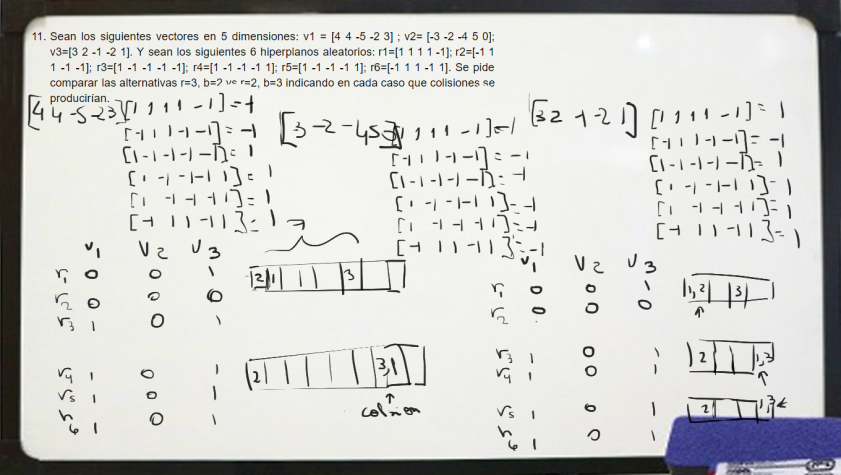 11. Sean los siguientes vectores en 5 dimensiones: v1 = [4 4 -5 -2 3] ; v2= [-3 -2 -4 5 0];
v3=[3 2 -1 -2 1]. Y sean los siguientes 6 hiperplanos aleatorios: r1=[1 1 1 1 -1]; r2=[-1 1
1 -1 -1]; r3=[1 -1 -1 -1 -1]; r4=[1 -1 -1 -1 1]; r5=[1 -1 -1 -1 1]; r6=[-1 1 1 -1 1]. Se pide
comparar las alternativas r=3, b=2 vs r=2, b=3 indicando en cada caso que colisiones se
producirían.
[4 4 -5 -2 3] [1 1 1 1 -1] = -1
[-1 1 1 -1 -1] = -1
[1 -1 -1 -1 -1] = 1
[1 -1 -1 -1 1] = 1
[1 -1 -1 -1 1] = 1
[-1 1 1 -1 1] = 1
[3 -2 -4 5 ] [1 1 1 1 -1] = -1
[-1 1 1 -1 -1] = -1
[1 -1 -1 -1 -1] = -1
[1 -1 -1 -1 1] = -1
[1 -1 -1 -1 1] = -1
[-1 1 1 -1 1] = -1
[3 2 -1 -2 1] [1 1 1 1 -1] = 1
[-1 1 1 -1 -1] = -1
[1 -1 -1 -1 -1] = 1
[1 -1 -1 -1 1] = 1
[1 -1 -1 -1 1] = 1
[-1 1 1 -1 1] = 1
7
v1 v2 v3
r1 0 0 1
r2 0 0 0
r3 1 0 1
2 1 3
r4 1 0 1
r5 1 0 1
r6 1 0 1
2 3,1
colision
v1 v2 v3
r1 0 0 1
r2 0 0 0
1,2 3
r3 1 0 1
r4 1 0 1
2 1,3
r5 1 0 1
r6 1 0 1
2 1,3